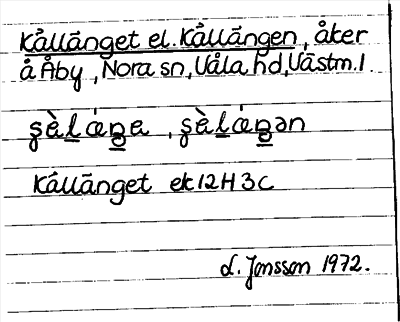 Kållänget el. Kållängen, åker
å Åby, Nora sn, Våla hd, Västm. l
Kållänget ek 12H 3c
L. Jonsson 1972.